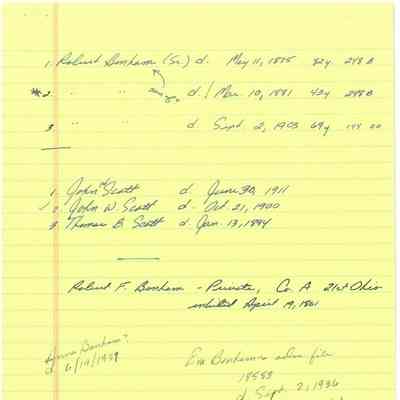 1. Robert Bonham (Sr.) d. May 11, 1875 82y 248 B
*2. " " d. Mar. 10, 1881 42y 248B
3 " " d. Sept. 2, 1903 69y 144
1. John Scott d. June 30, 1911
✓ 2. John W. Scott d. Oct 21, 1900
3 Thomas B Scott d. Jan. 13, 1894
Robert F. Bonham - Private, Co A 21st Ohio
enlisted April 19, 1861
Bonham?
d 6/14/1939
Eva Bonham's adm file
18553
d Sept. 2, 1936